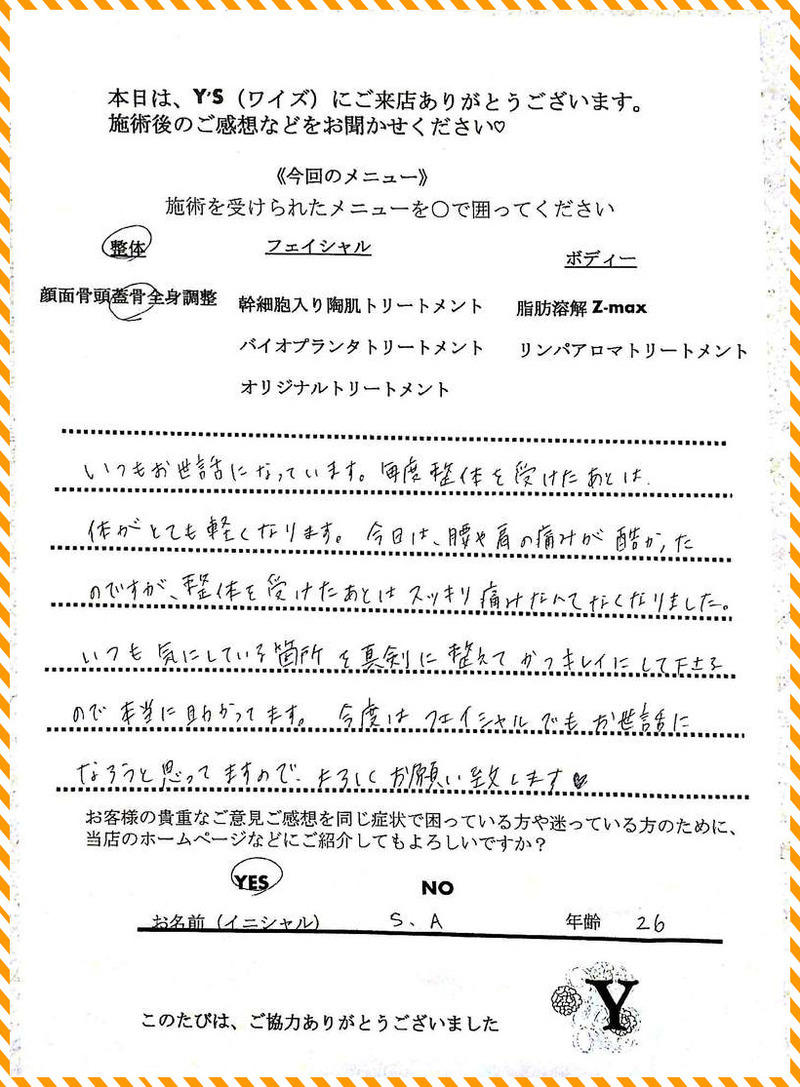 本日は、Y'S（ワイズ）にご来店ありがとうございます。
施術後のご感想などをお聞かせください♡
《今回のメニュー》
施術を受けられたメニューを〇で囲ってください
整体 フェイシャル ボディー
顔面骨頭蓋骨全身調整 幹細胞入り陶肌トリートメント 脂肪溶解 Z-max
バイオプランタトリートメント リンパアロマトリートメント
オリジナルトリートメント
いつもお世話になっています。毎度整体を受けたあとは
体がとても軽くなります。今日は、腰や肩の痛みが酷かった
のですが、整体を受けたあとはスッキリ痛みなんてなくなりました。
いつも気にしている箇所を真剣に整えてかつキレイにして下さる
ので本当に助かってます。今度はフェイシャルでもお世話に
なろうと思ってますので、よろしくお願い致します♥
お客様の貴重なご意見ご感想を同じ症状で困っている方や迷っている方のために、
当店のホームページなどにご紹介してもよろしいですか？
YES NO
お名前（イニシャル） S、A 年齢 26
Y
このたびは、ご協力ありがとうございました